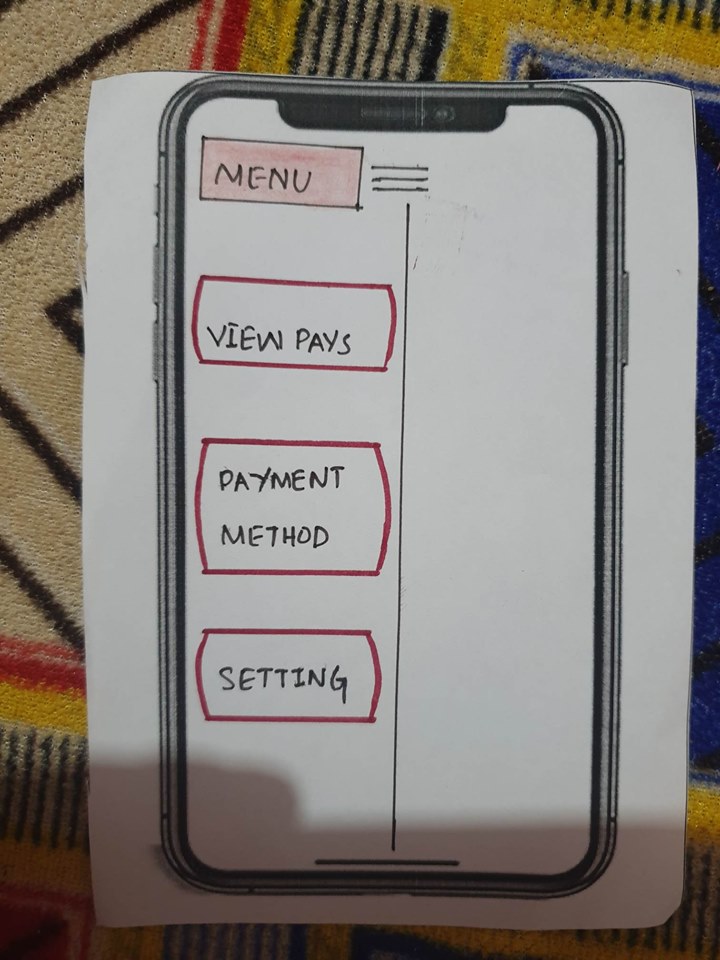 MENU
VIEW PAYS
PAYMENT
METHOD
SETTING